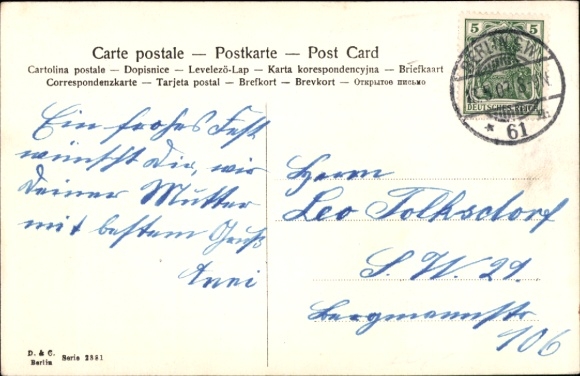 Carte postale — Postkarte — Post Card
Cartolina postale — Dopisnice — Levelező-Lap — Karta korespondencyjna — Briefkaart
Correspondenzkarte — Tarjeta postal — Brefkort — Brevkort — Открытое письмо
5 5
BERLIN S.W.
DEUTSCHES REICH
* 61
Ein frohes Fest
wünscht Dir, wie
Deiner Mutter
mit bestem Gruß
Herrn
Leo Tolksdorf
S. W. 29.
Bergmannstr
106
D. & C.
Berlin
Serie 2381